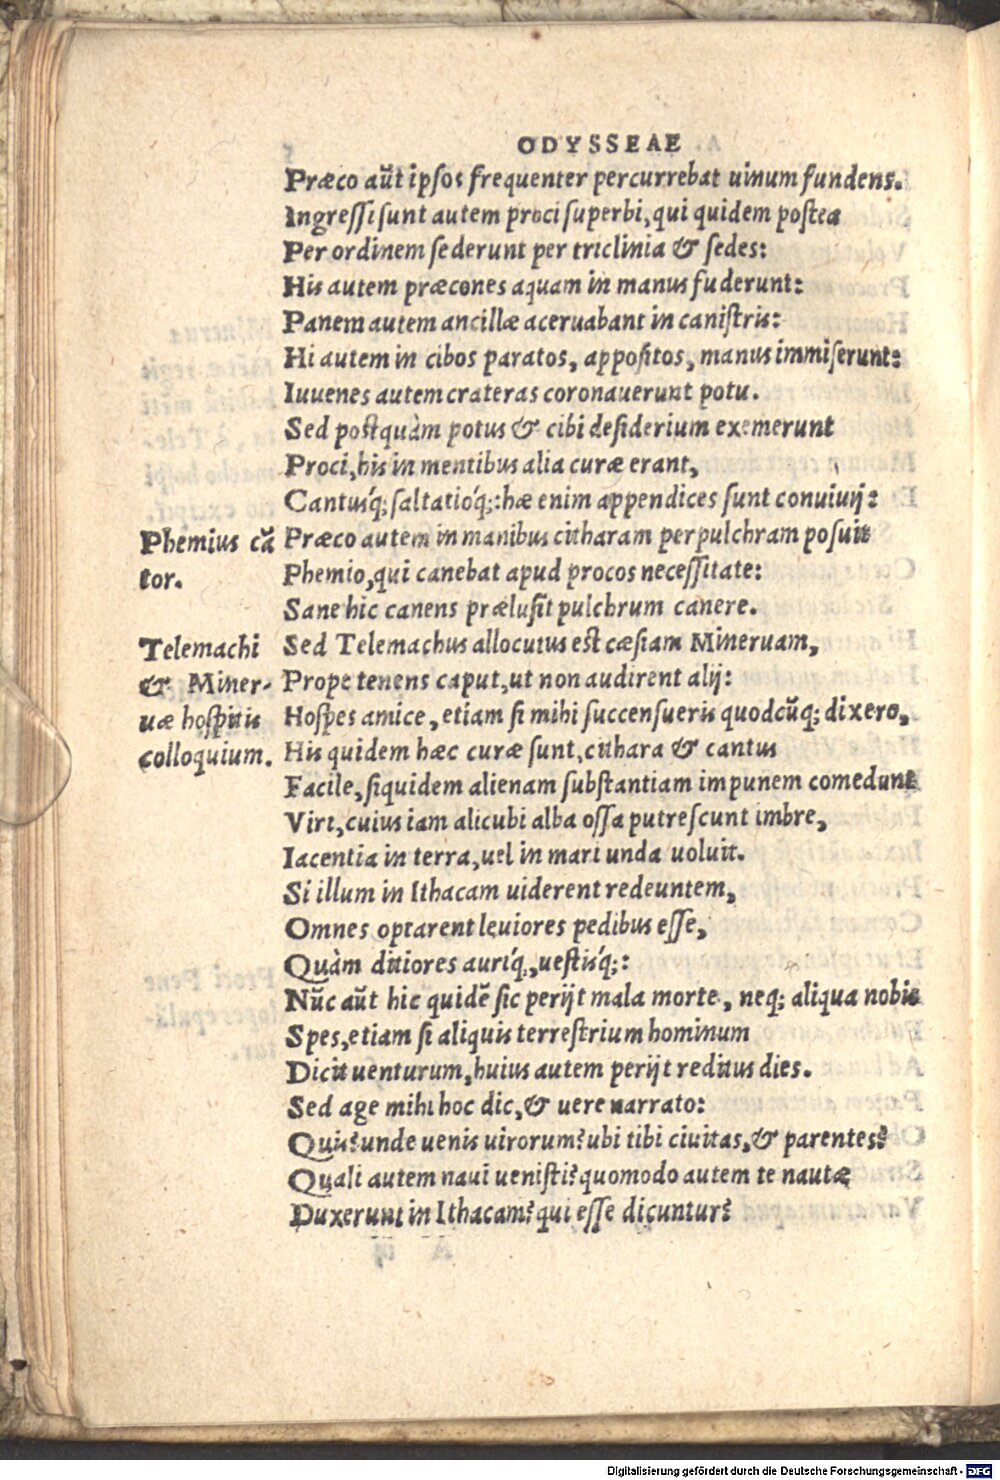 ODYSSEAE
Præco aũt ipsos frequenter percurrebat uinum fundens.
Ingressi sunt autem proci superbi, qui quidem postea
Per ordinem sederunt per triclinia & sedes:
His autem præcones aquam in manus fuderunt:
Panem autem ancillæ aceruabant in canistris:
Hi autem in cibos paratos, appositos, manus immiserunt:
Iuuenes autem crateras coronauerunt potu.
Sed postquàm potus & cibi desiderium exemerunt
Proci, his in mentibus alia curæ erant,
Cantusq́; saltatioq́;: hæ enim appendices sunt conuiuij:
Phemius cã
tor.
Præco autem in manibus citharam perpulchram posuit
Phemio, qui canebat apud procos necessitate:
Sane hic canens prælusit pulchrum canere.
Telemachi
& Miner-
uæ hospitis
colloquium.
Sed Telemachus allocutus est cæsiam Mineruam,
Prope tenens caput, ut non audirent alij:
Hospes amice, etiam si mihi succensueris quodcũq; dixero,
His quidem hæc curæ sunt, cithara & cantus
Facile, siquidem alienam substantiam impunem comedunt
Viri, cuius iam alicubi alba ossa putrescunt imbre,
Iacentia in terra, uel in mari unda uoluit.
Si illum in Ithacam uiderent redeuntem,
Omnes optarent leuiores pedibus esse,
Quàm ditiores auriq́, uestisq́;:
Nũc aũt hic quidẽ sic perijt mala morte, neq; aliqua nobis
Spes, etiam si aliquis terrestrium hominum
Dicit uenturum, huius autem perijt reditus dies.
Sed age mihi hoc dic, & uere narrato:
Quis? unde uenis uirorum? ubi tibi ciuitas, & parentes?
Quali autem naui uenisti? quomodo autem te nautæ
Duxerunt in Ithacam? qui esse dicuntur?
Digitalisierung gefördert durch die Deutsche Forschungsgemeinschaft - DFG